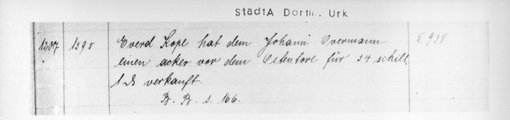 StädtA Dortm. Urk
1395
Everd Kope hat dem Johann Overmann
einen acker vor dem Ostentore für 34 schill.
verkauft.
B. B. s. 166.